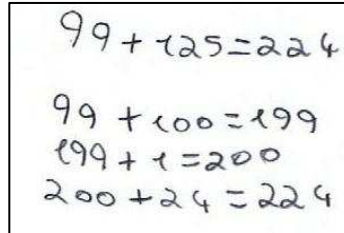 99 + 125 = 224
99 + 100 = 199
199 + 1 = 200
200 + 24 = 224